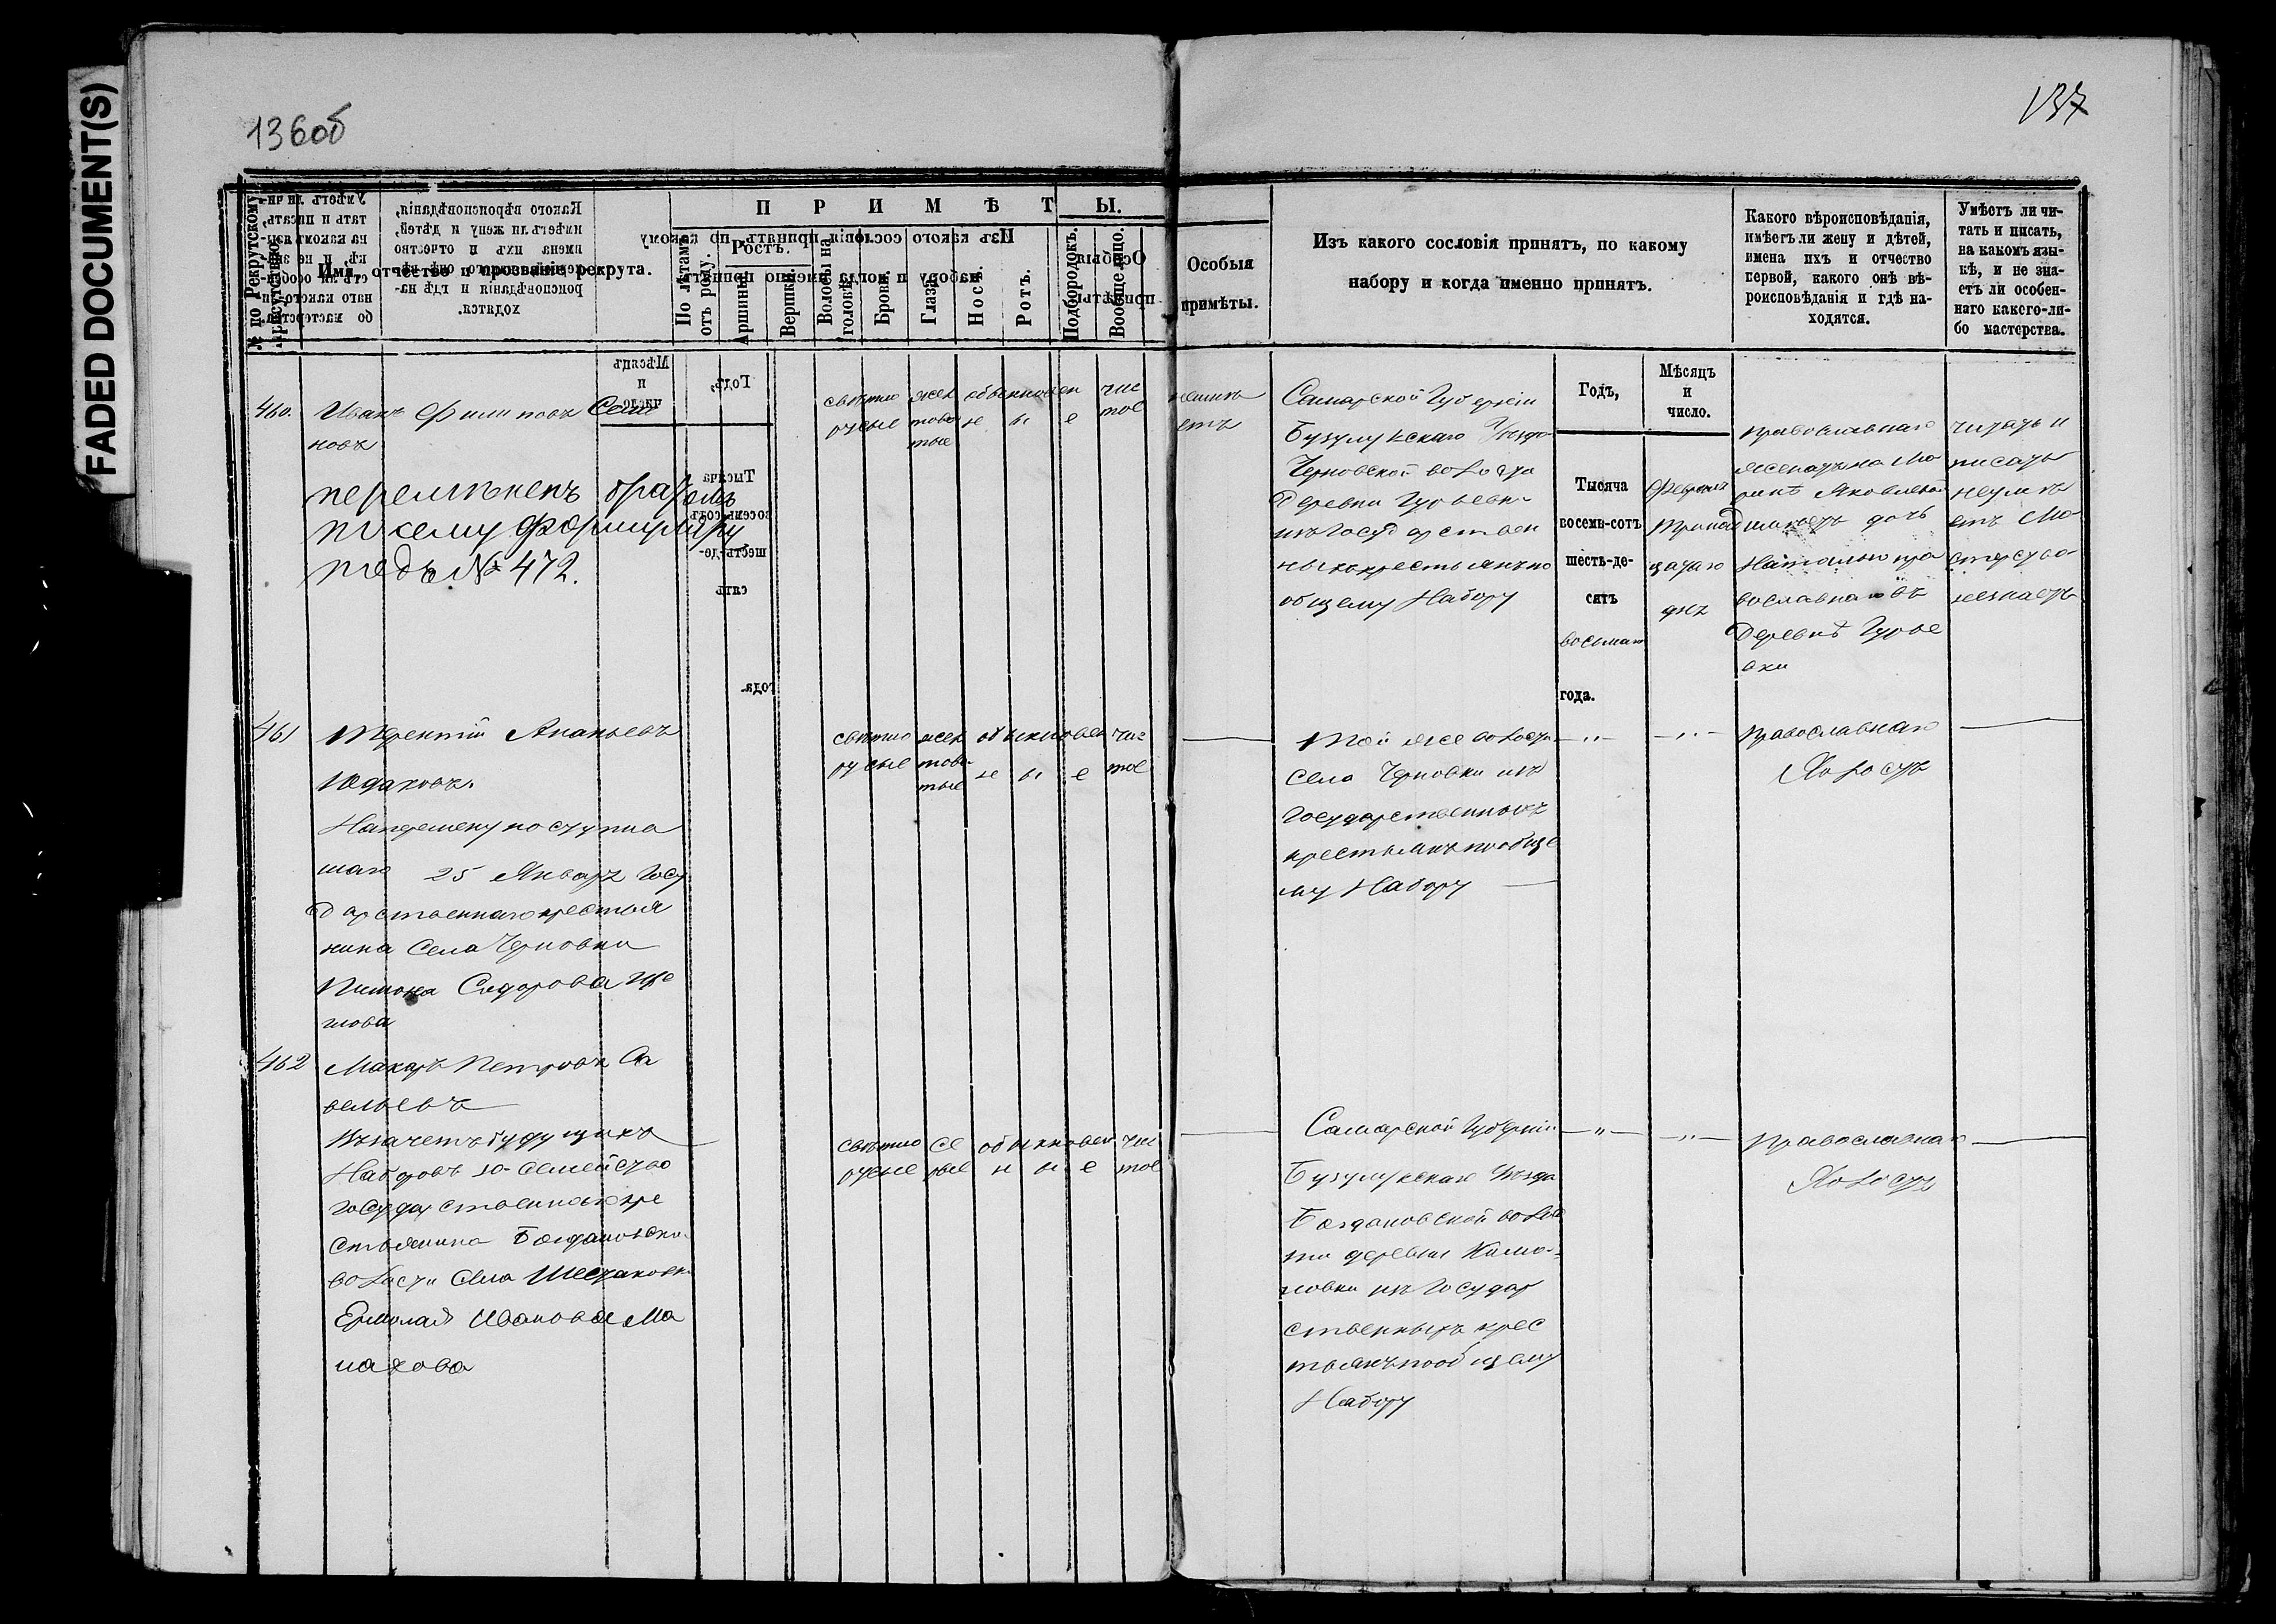 FADED DOCUMENT(S)
136об
137
№ по Рекрутскому присутствію.
Имя, отчество и прозваніе рекрута.
ПРИМѢТЫ.
По лѣтамъ отъ роду.
Ростъ.
Аршины.
Вершки.
Волосы на головѣ.
Брови.
Глаза.
Носъ.
Ротъ.
Подбородокъ.
Вообще лицо.
Особыя
примѣты.
Изъ какого сословія принятъ, по какому
набору и когда именно принятъ.
Какого вѣроисповѣданія,
имѣетъ ли жену и дѣтей,
имена ихъ и отчество
первой, какого онѣ вѣ-
роисповѣданія и гдѣ на-
ходятся.
Умѣетъ ли чи-
тать и писать,
на какомъ язы-
кѣ, и не зна-
етъ ли особен-
наго какого-ли-
бо мастерства.
Годъ,
Мѣсяцъ
и
число.
460.
Иванъ Филиповъ Семе
новъ
перемѣненъ братомъ
по сему формуляру
подъ № 472.
свѣтло
русые
жел
това
тые
обыкновен
н ы е
чис
тое
неимѣ
етъ
Самарской Губерніи
Бузулукскаго Уѣзда
Черновской волости
деревни Гурьевки
изъ Государствен
ныхъ крестьянъ по
общему Набору
Тысяча
восемь-сотъ
шесть-де-
сятъ
восьмаго
года.
Февраля
тринад
цатаго
дня
православнаго
женатъ на Ма
ринѣ Яковлевой
имѣетъ дочь
Наталью пра
вославнаго въ
деревнѣ Гурье
вки
читать и
писать
неумѣ
етъ Ма
стерства
незнаетъ
461
Терентій Ананьевъ
Юдаковъ.
На перемену поступив
шаго 25 Января Госу
дарственнаго крестья
нина Села Черновки
Пимона Сидорова
свѣтло
русые
жел
това
тые
обыкновен
н ы е
чис
тое
Той же волости
села Черновки изъ
Государственныхъ
крестьянъ по обще
му Набору
— " —
— " —
православнаго
Холостъ
462
Макаръ Петровъ Са
вельевъ
Въ зачетъ будущихъ
Наборовъ 10- семейства
государственнаго кре
стьянина Богдановской
волости села Шестаковки
Ермолая Иванова Ма
лахова
свѣтло
русые
се
рые
обыкновен
н ы е
чис
тое
Самарской Губерніи
Бузулукскаго Уѣзда
Богдановской волос
ти деревни
изъ Государ
ственныхъ крес
тьянъ по общему
Набору
— " —
— " —
православнаго
Холостъ